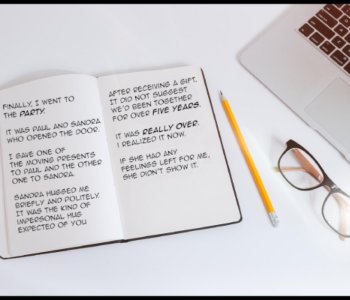 FINALLY, I WENT TO
THE PARTY.
IT WAS PAUL AND SANDRA
WHO OPENED THE DOOR.
I GAVE ONE OF
THE MOVING PRESENTS
TO PAUL AND THE OTHER
ONE TO SANDRA.
SANDRA HUGGED ME
BRIEFLY AND POLITELY.
IT WAS THE KIND OF
IMPERSONAL HUG
EXPECTED OF YOU
AFTER RECEIVING A GIFT.
IT DID NOT SUGGEST
WE'D BEEN TOGETHER
FOR OVER FIVE YEARS.
IT WAS REALLY OVER.
I REALIZED IT NOW.
IF SHE HAD ANY
FEELINGS LEFT FOR ME,
SHE DIDN'T SHOW IT.